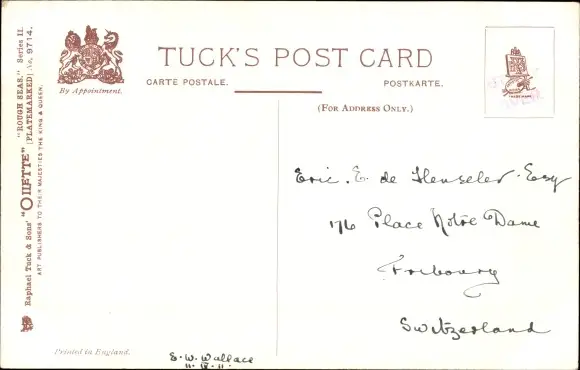 TUCK'S POST CARD
CARTE POSTALE. POSTKARTE.
(FOR ADDRESS ONLY.)
By Appointment.
TRADE MARK
Raphael Tuck & Sons' "OILETTE" "ROUGH SEAS." Series II.
[PLATEMARKED] No. 9714.
ART PUBLISHERS TO THEIR MAJESTIES THE KING & QUEEN.
Eric. E. de Henseler. Esq
176 Place Notre Dame
Fribourg
Switzerland
Printed in England.
E. W. Wallace
11. IV. 11.